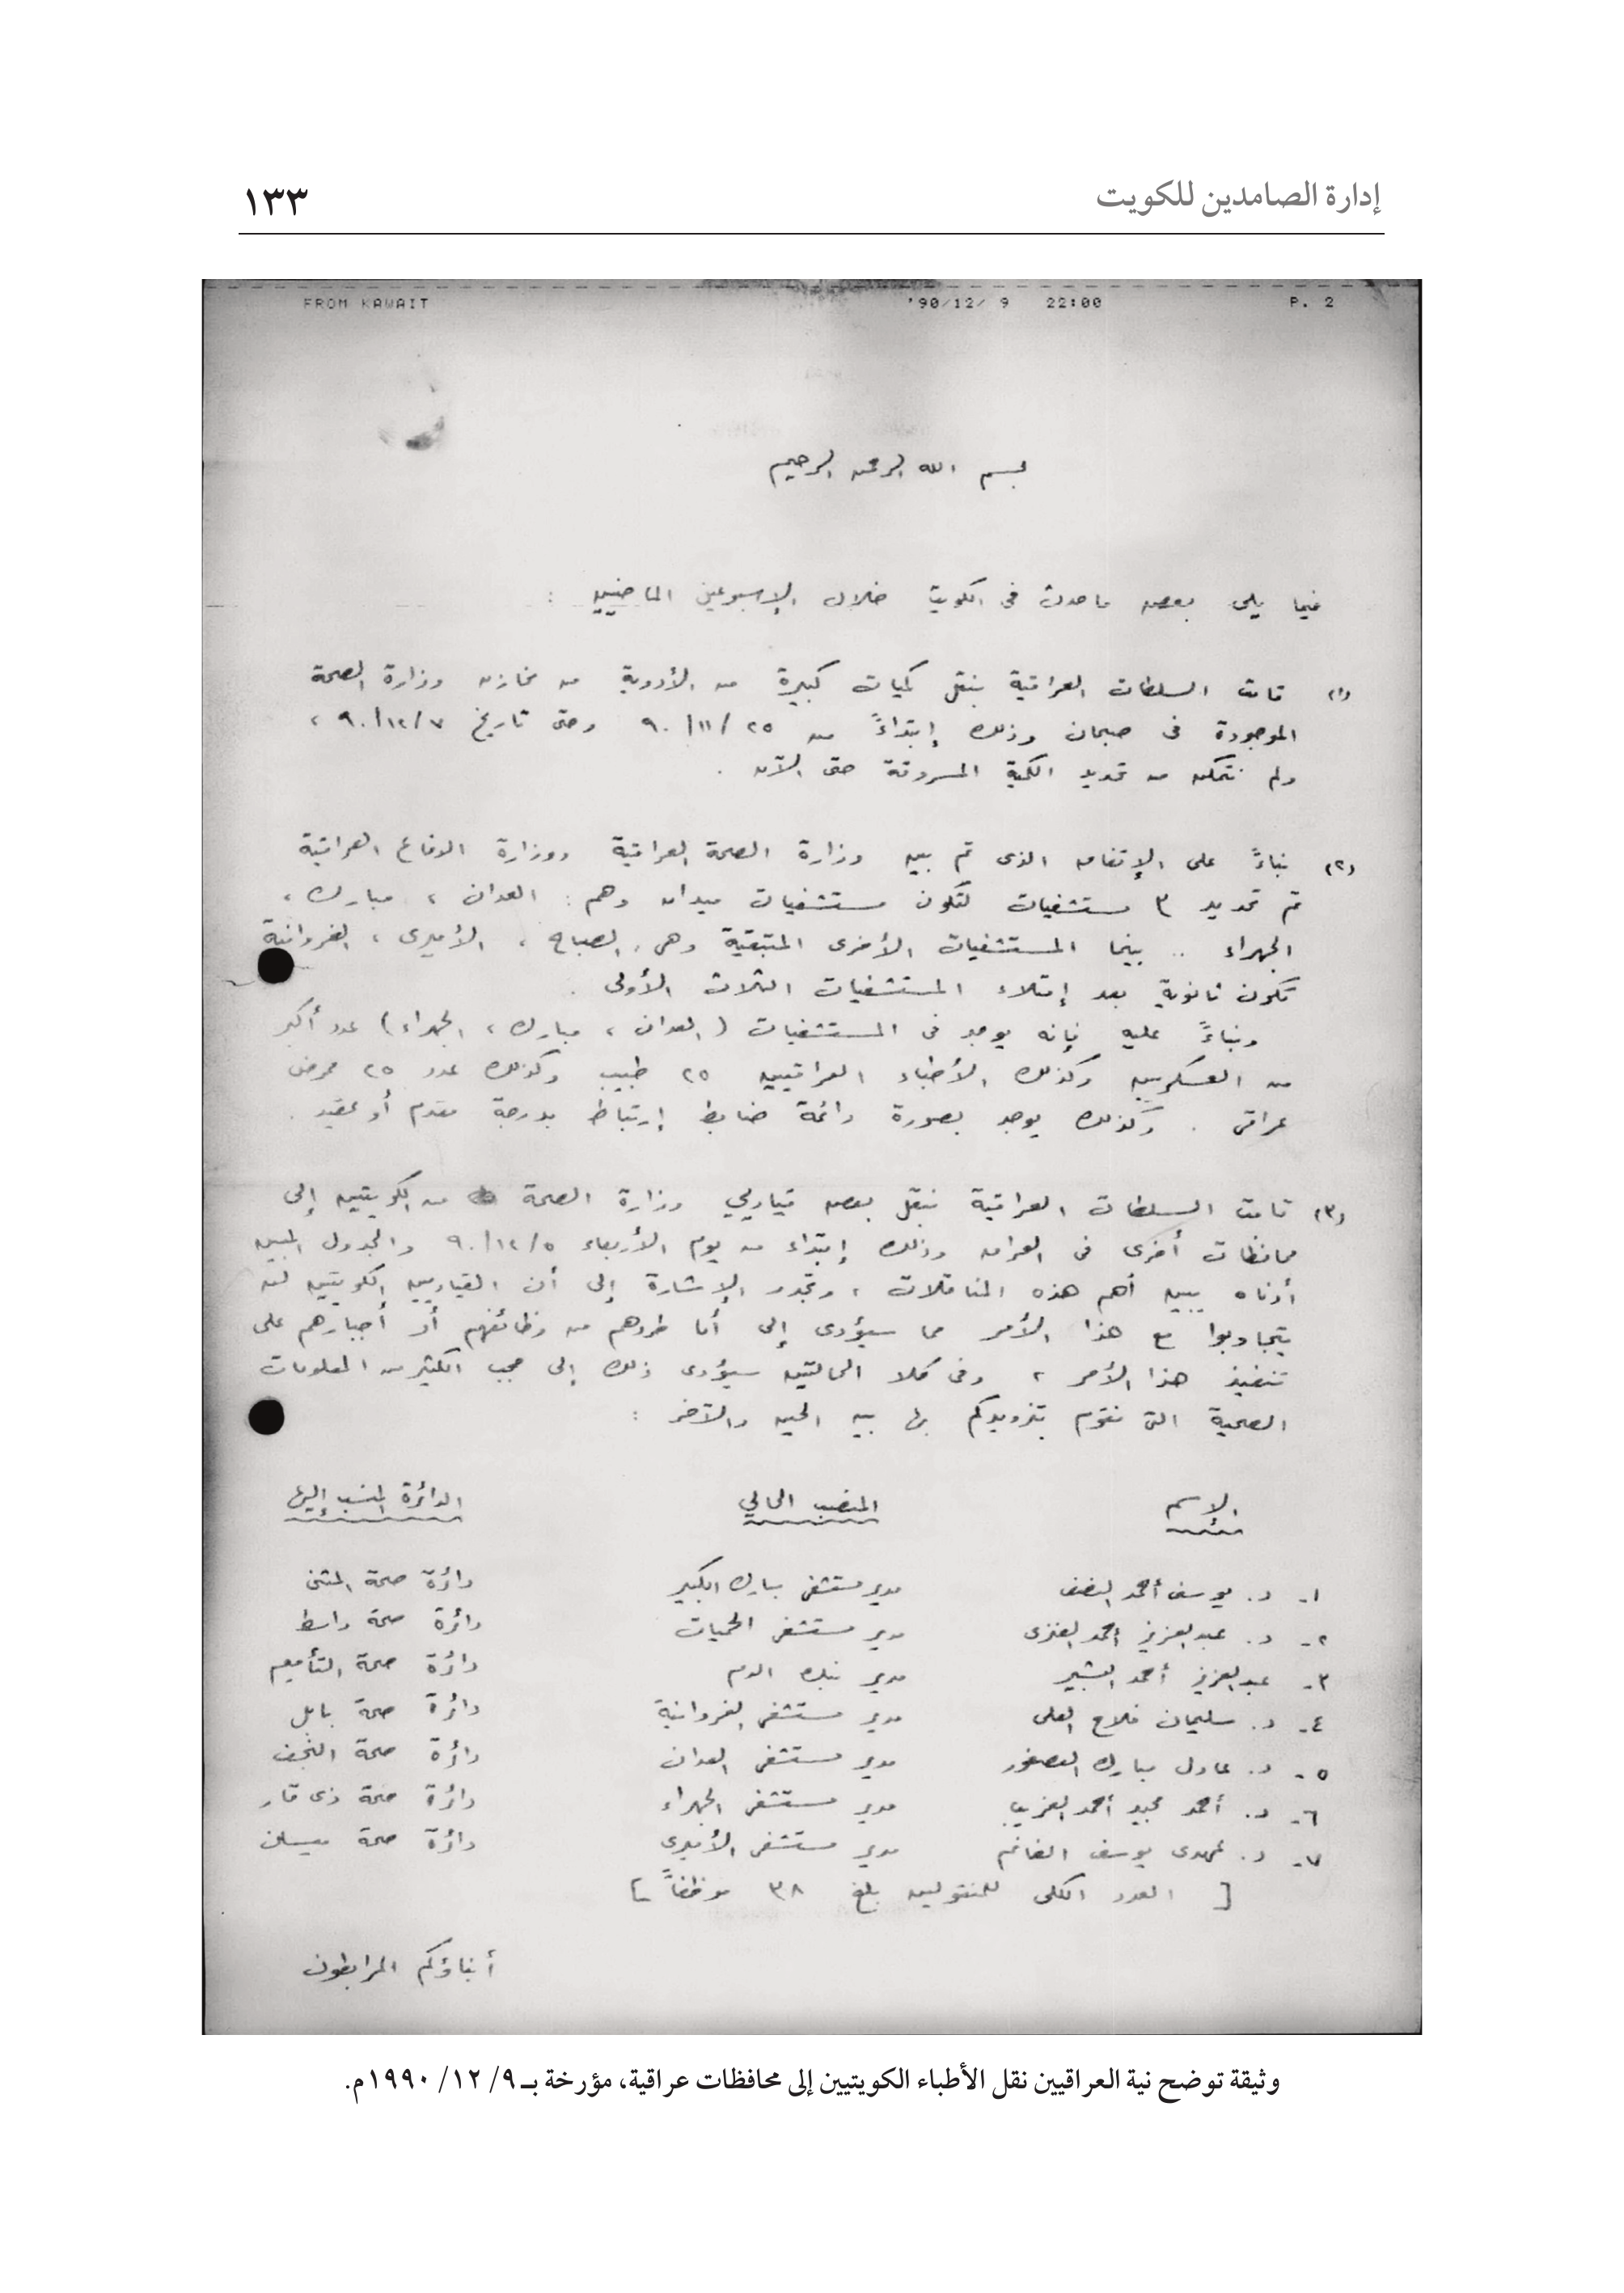 إدارة الصامدين للكويت
١٣٣
FROM KAWAIT '90/12/ 9 22:00 P. 2
بسم الله الرحمن الرحيم
فيما يلي بعض ما حدث في الكويت خلال الإسبوعين الماضيين :
(١) قامت السلطات العراقية بنقل كميات كبيرة من الأدوية من مخازن وزارة الصحة
الموجودة في صبحان وذلك إبتداءً من ٢٥ /١١/ ٩٠ وحتى تاريخ ٩٠/١٢/٧ ،
ولم نتمكن من تحديد الكمية المسروقة حتى الآن .
(٢) بناءً على الإتفاق الذي تم بين وزارة الصحة العراقية ووزارة الدفاع العراقية
تم تحديد ٣ مستشفيات لتكون مستشفيات ميدان وهم : العدان ، مبارك ،
الجهراء .. بينما المستشفيات الأخرى المتبقية وهي الصباح ، الأميري ، الفروانية
تكون ثانوية بعد إمتلاء المستشفيات الثلاث الأولى .
وبناءً عليه فإنه يوجد في المستشفيات (العدان ، مبارك ، الجهراء) عدد أكبر
من العسكريين وكذلك الأطباء العراقيين ٢٥ طبيب وكذلك عدد ٢٥ ممرض
عراقي . وكذلك يوجد بصورة دائمة ضابط إرتباط بدرجة مقدم أو عقيد .
(٣) قامت السلطات العراقية بنقل بعض قياديي وزارة الصحة من الكويتيين إلى
محافظات أخرى في العراق وذلك إبتداء من يوم الأربعاء ٩٠/١٢/٥ والجدول المبين
أدناه يبين أهم هذه المناقلات ، وتجدر الإشارة إلى أن القياديين الكويتيين لن
يتجاوبوا مع هذا الأمر مما سيؤدي إلى أما طردهم من وظائفهم أو أجبارهم على
تنفيذ هذا الأمر ، وفي كلا الحالتين سيؤدي ذلك إلى حجب الكثير من المعلومات
الصحية التي نقوم بتزويدكم بها بين الحين والآخر :
الاسم المنصب الحالي الدائرة المنسب إليها
١- د. يوسف أحمد النصف مدير مستشفى مبارك الكبير دائرة صحة المثنى
٢- د. عبدالعزيز أحمد العنزي مدير مستشفى الحميات دائرة صحة واسط
٣- عبدالعزيز أحمد البشير مدير بنك الدم دائرة صحة التأميم
٤- د. سليمان فلاح العلي مدير مستشفى الفروانية دائرة صحة بابل
٥- د. عادل مبارك العصفور مدير مستشفى العدان دائرة صحة النجف
٦- د. أحمد مجيد أحمد الغريب مدير مستشفى الجهراء دائرة صحة ذي قار
٧- د. مهدي يوسف الغانم مدير مستشفى الأميري دائرة صحة ميسان
[ العدد الكلي للمنقولين بلغ ٣٨ موظفاً ]
أبناؤكم المرابطون
وثيقة توضح نية العراقيين نقل الأطباء الكويتيين إلى محافظات عراقية، مؤرخة بـ ٩/ ١٢/ ١٩٩٠م.